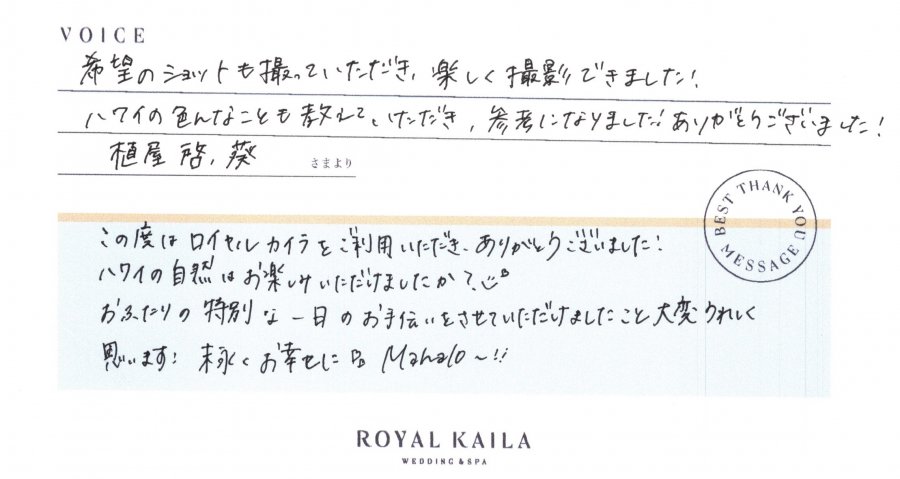 VOICE
希望のショットも撮っていただき、楽しく撮影できました!
ハワイの色んなことも教えていただき、参考になりました!ありがとうございました!
植屋 啓、葵 さまより
BEST THANK YOU MESSAGE
この度はロイヤルカイラをご利用いただき、ありがとうございました!
ハワイの自然はお楽しみいただけましたか?
おふたりの特別な一日のお手伝いをさせていただけましたこと大変うれしく
思います! 末永くお幸せに Mahalo〜!!
ROYAL KAILA
WEDDING & SPA